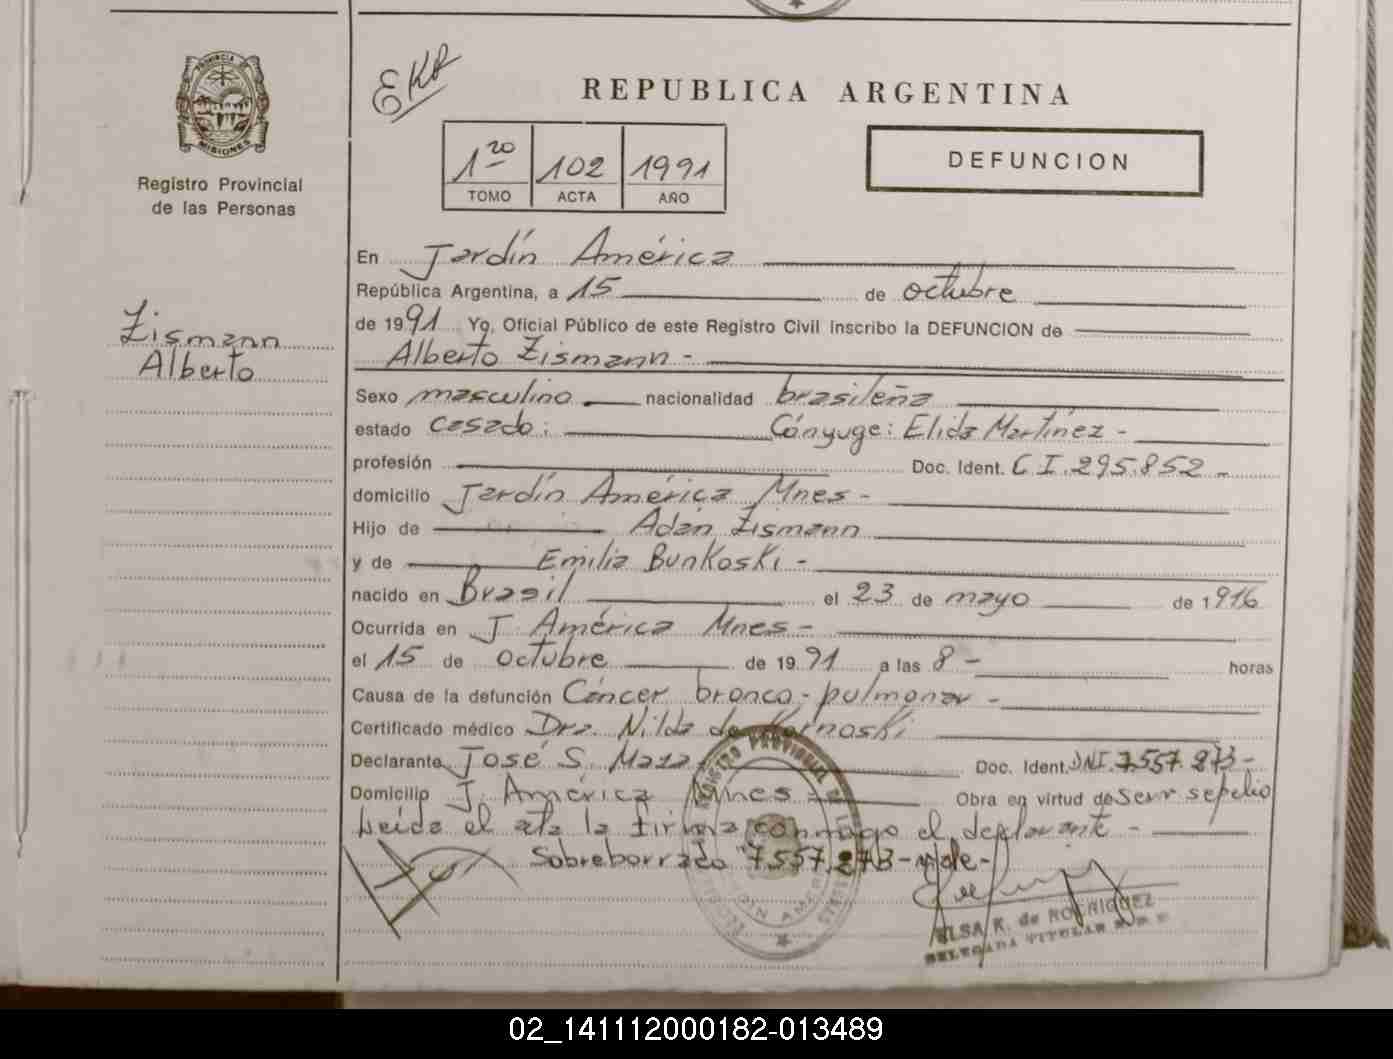 EKR
REPUBLICA ARGENTINA
PROVINCIA DE
MISIONES
Registro Provincial
de las Personas
1ro 102 1991
TOMO ACTA AÑO
DEFUNCION
Zismann
Alberto
En Jardín América
República Argentina, a 15 de octubre
de 1991 Yo, Oficial Público de este Registro Civil inscribo la DEFUNCION de
Alberto Zismann -
Sexo masculino nacionalidad brasileña
estado casado: Cónyuge: Elida Martínez -
profesión Doc. Ident. C.I. 295.852 -
domicilio Jardín América Mnes -
Hijo de Adán Zismann
y de Emilia Bunkoski -
nacido en Brasil el 23 de mayo de 1916
Ocurrida en J. América Mnes -
el 15 de octubre de 1991 a las 8 - horas
Causa de la defunción Cáncer bronco-pulmonar -
Certificado médico Dra. Nilda de Kornoski
Declarante José S. Maza Doc. Ident. DNI. 7.557.273 -
Domicilio J. América Mnes - Obra en virtud de serv sepelio
Leída el acta la firma conmigo el declarante -
Sobreborrado "7.557.273 - vale -
ELSA K. de RODRIGUEZ
DELEGADA TITULAR
02_141112000182-013489